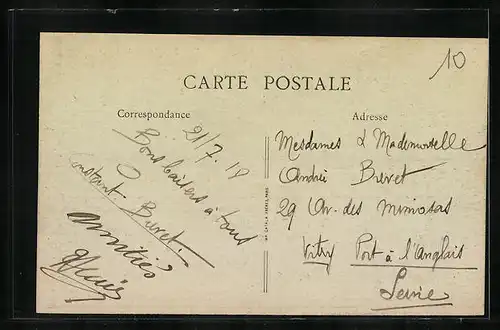 10
CARTE POSTALE
Correspondance
Adresse
21/7.18
Bons baisers à tous
Constant Buret.
Amitiés
Mesdames & Mademoiselle
André Buret
29 Av. des Mimosas
Vitry Port à l'Anglais
Seine